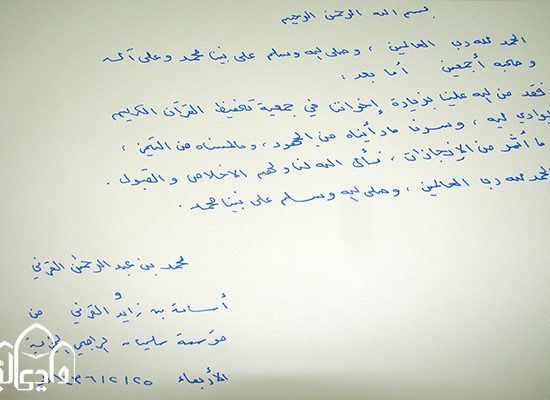 بسم الله الرحمن الرحيم
الحمد لله رب العالمين ، وصلى الله وسلم على نبينا محمد وعلى آله
وصحبه أجمعين أما بعد :
فقد من الله علينا بزيارة إخواننا في جمعية تحفيظ القرآن الكريم
بوادي ليه ، وسرنا ما رأيناه من الجهود ، وما لمسناه من التميز ،
ما أثمر من الإنجازات ، نسأل الله لنا ولهم الإخلاص والقبول .
الحمد لله رب العالمين ، وصلى الله وسلم على نبينا محمد .
محمد بن عبد الرحمن القرني
و
أسامة بن زايد القرني من
مؤسسة سليمان الراجحي الخيرية
الأربعاء ١٤٣٦/٢/٢٥